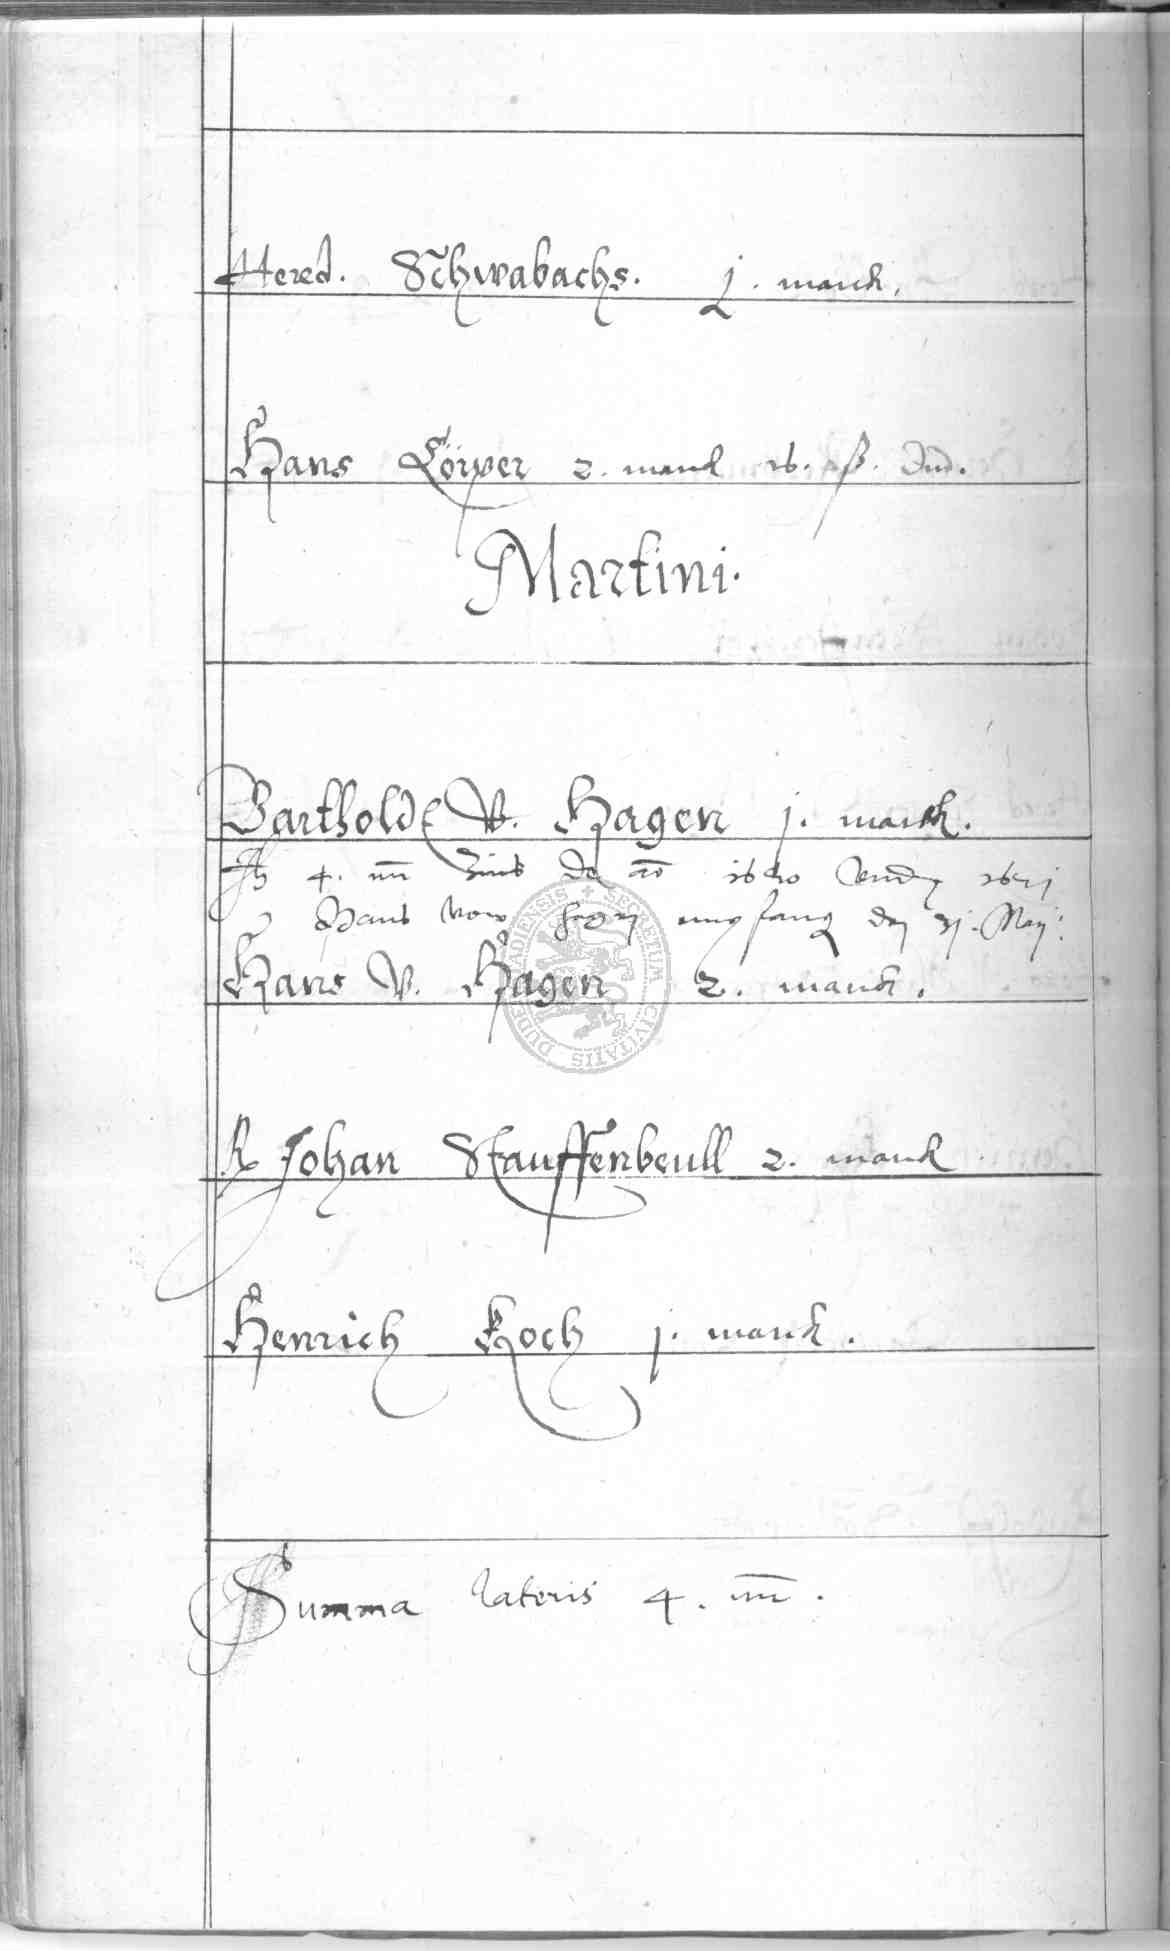 Hered. Schwabachs. j. marck.
Hans Cörper 2. marck 16. ß. Dud.
Martini.
Barthold V. Hagen j. marck.
4. m̄ Zins de ao 1640 1641
Hans von Hagen den 31. Maij
Hans V. Hagen 2. marck.
Johan Stauffenbeull 2. marck.
Henrich Koch j. marck.
Summa lateris 4. m̄.
SECRETUM CIVITATIS DUDERSTADIENSIS